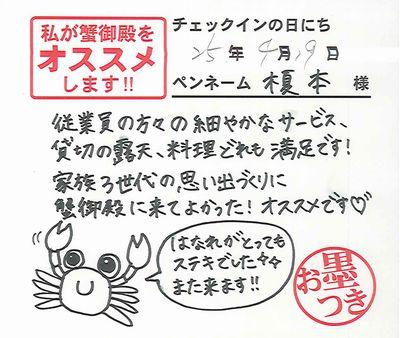 私が蟹御殿を
オススメ
します!!
チェックインの日にち
25年4月19日
ペンネーム 榎本 様
従業員の方々の細やかなサービス、
貸切の露天、料理どれも満足です!
家族3世代の思い出づくりに
蟹御殿に来てよかった!オススメです♡
はなれがとっても
ステキでした☆☆
また来ます!!
お墨つき